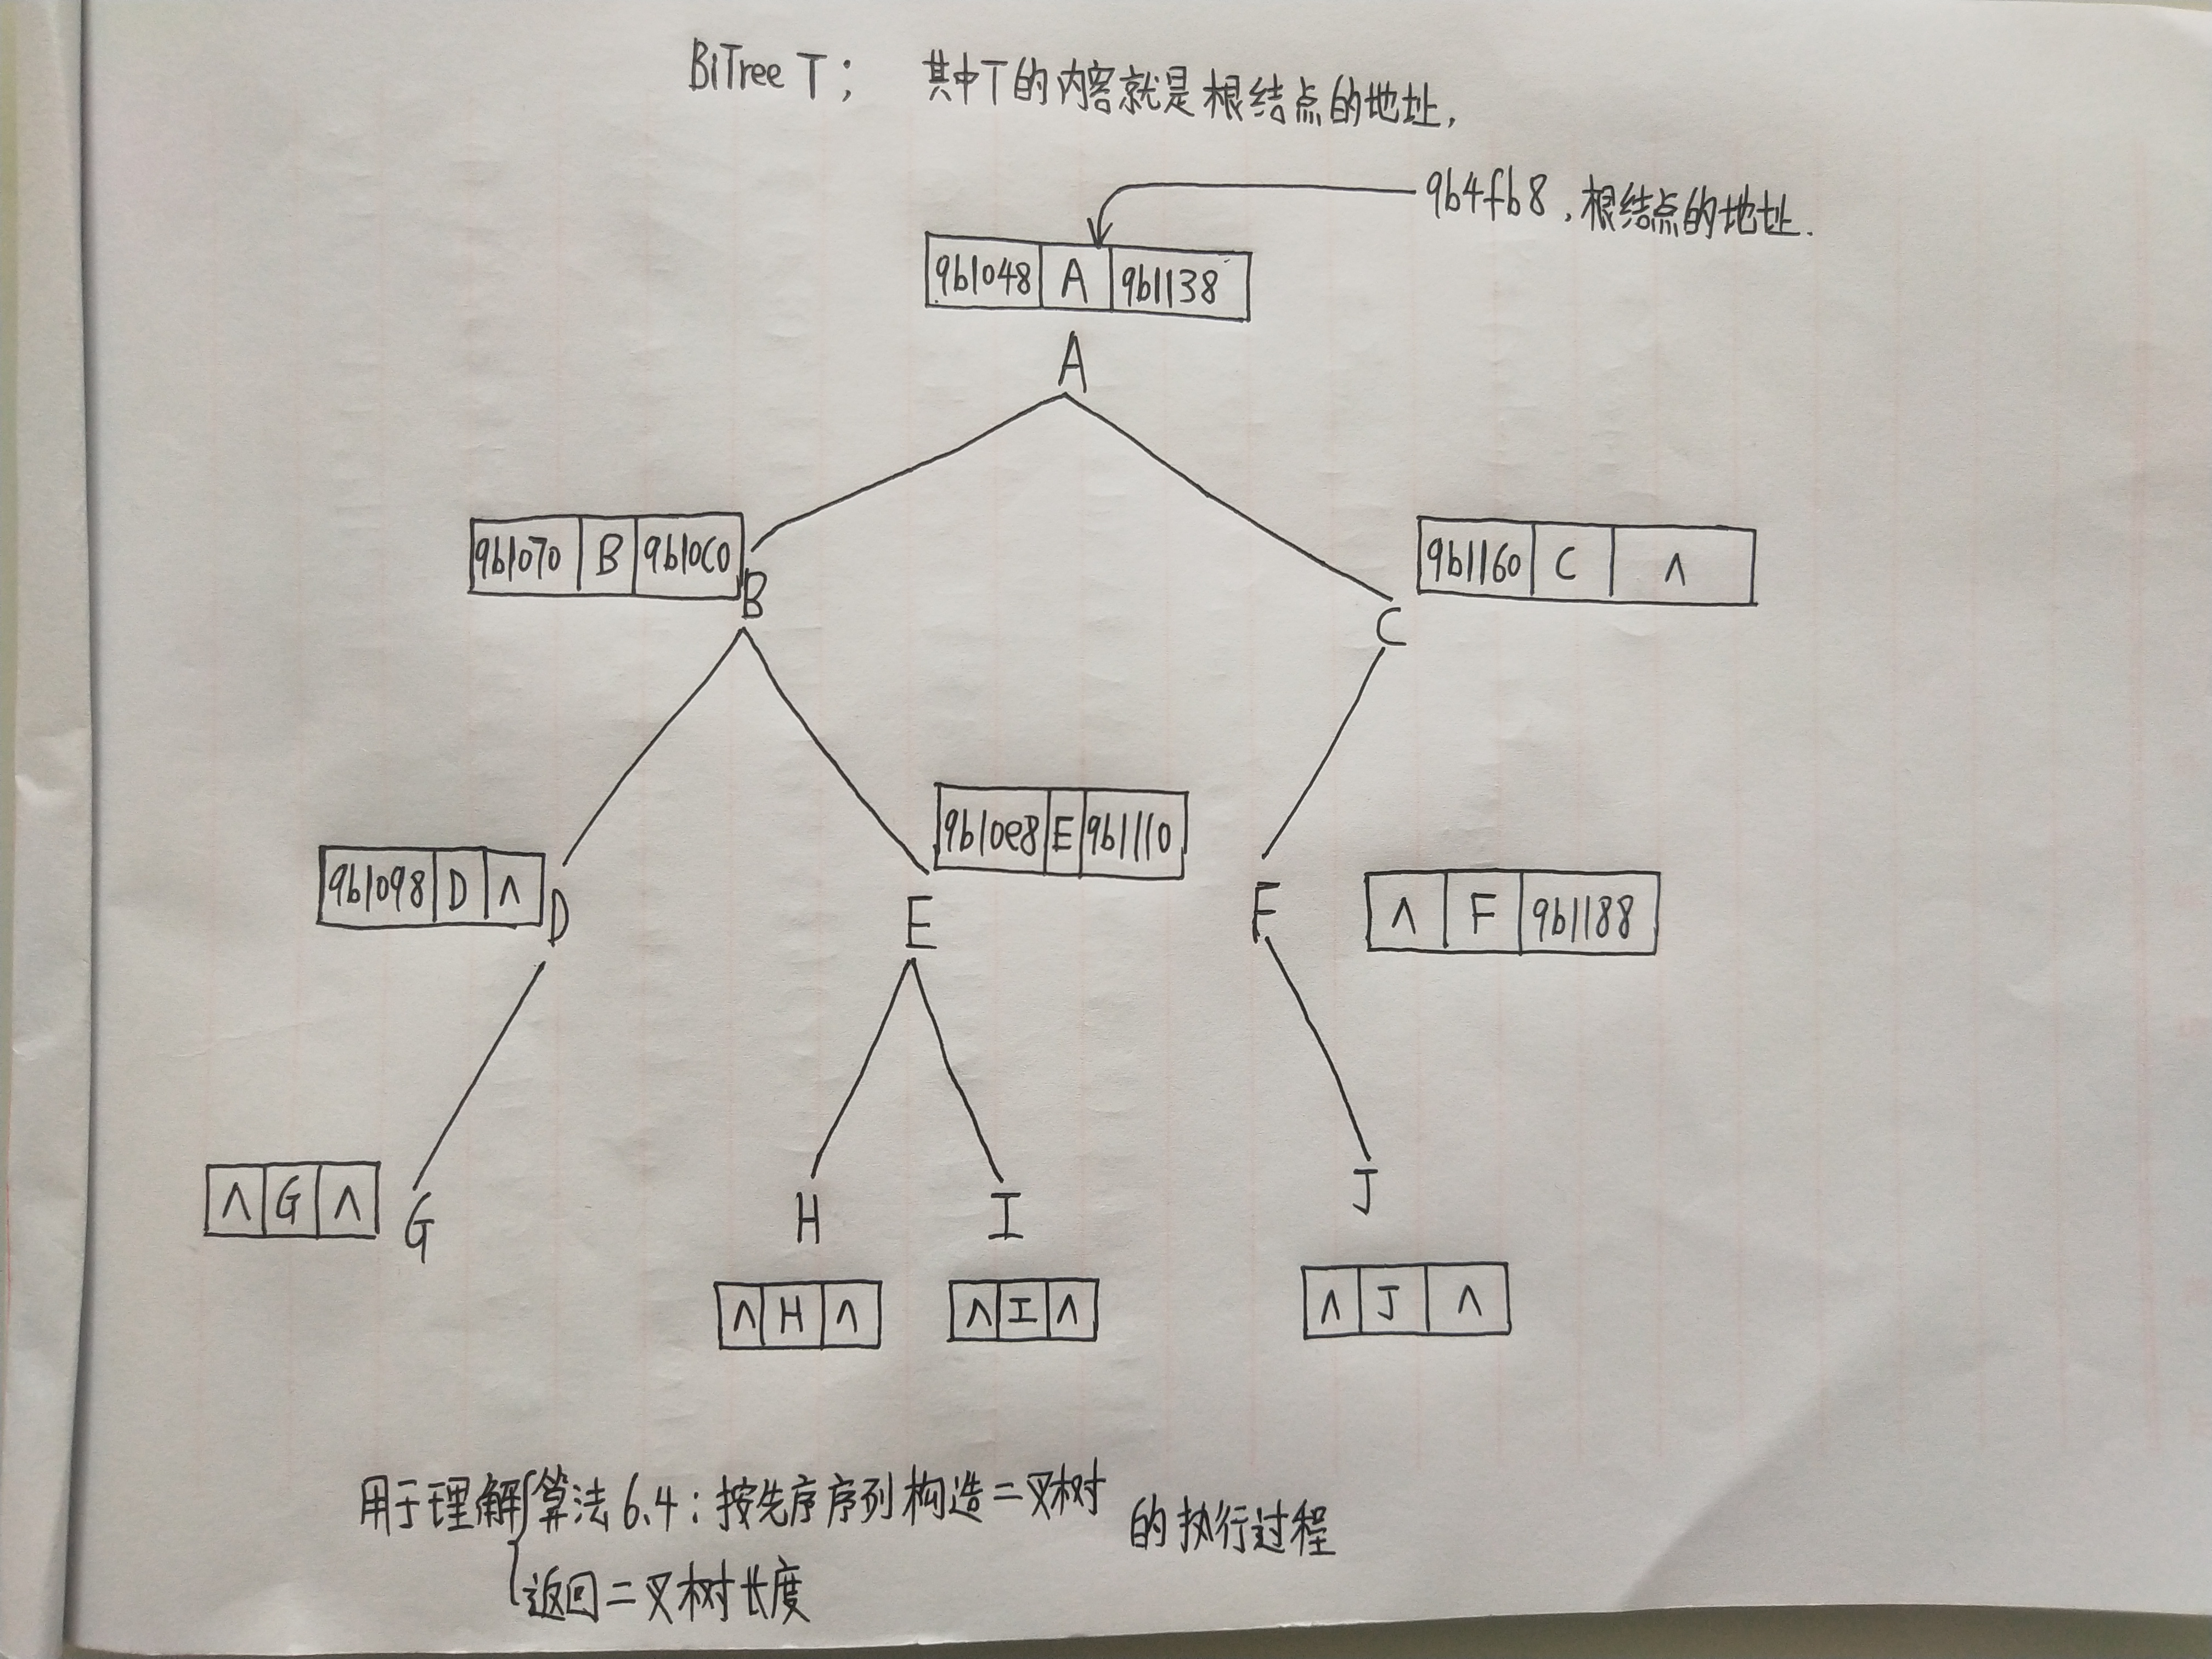 BiTree T; 其中T的内容就是根结点的地址,
9b4fb8,根结点的地址.
9b1048 A 9b1138
A
9b1070 B 9b10C0
9b1160 C ∧
B
C
9b10e8 E 9b1110
9b1098 D ∧
∧ F 9b1188
D
E
F
∧ G ∧
G
H
I
J
∧ H ∧
∧ I ∧
∧ J ∧
用于理解{算法6.4:按先序序列构造二叉树 的执行过程
返回二叉树长度